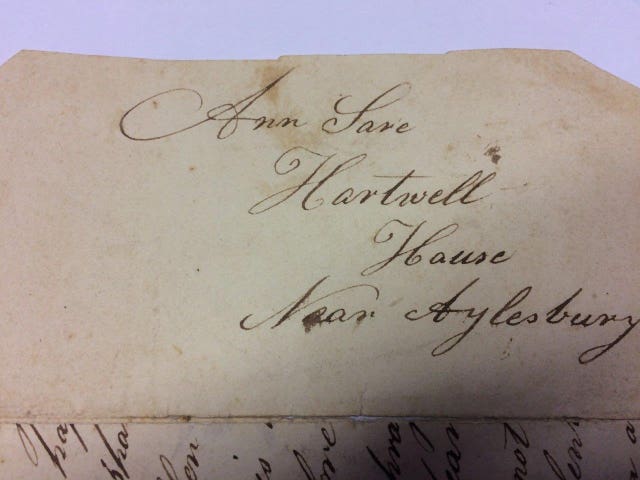 Ann Sare
Hartwell
House
Near Aylesbury
not